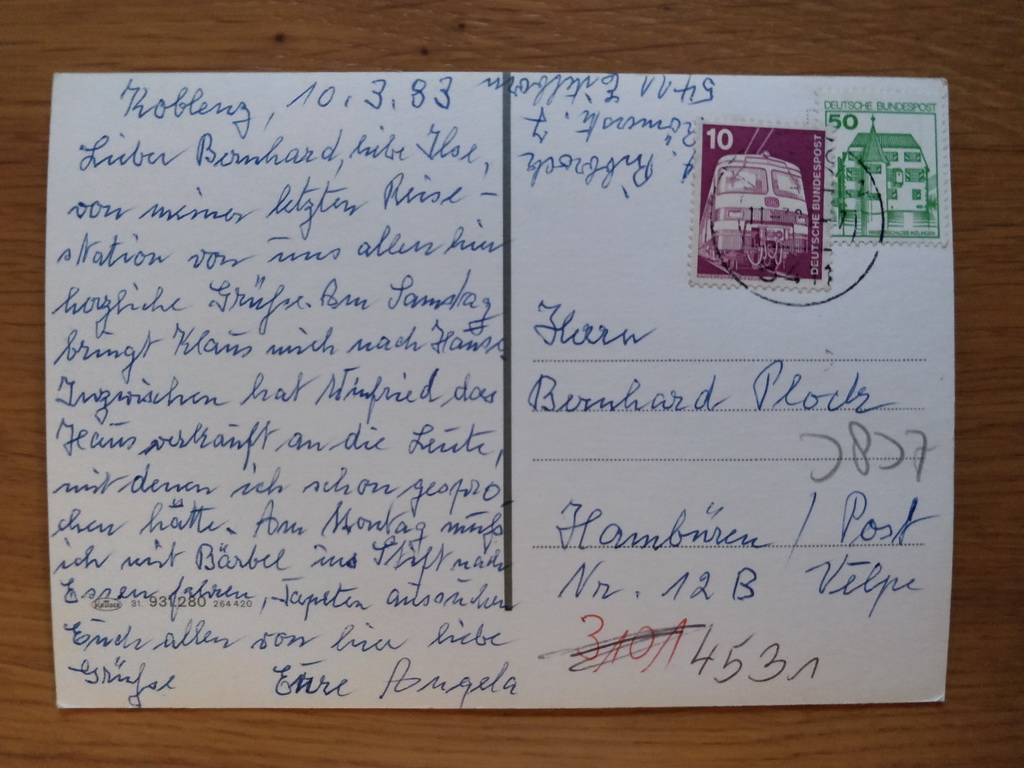 Koblenz, 10.3.83
Lieber Bernhard, liebe Ilse,
von meiner letzten Reise-
station von uns allen hier
herzliche Grüße. Am Samstag
bringt Klaus mich nach Hause.
Inzwischen hat Winfried das
Haus verkauft an die Leute,
mit denen ich schon gespro
chen hätte. Am Montag muß
ich mit Bärbel ins Stift nach
Essen fahren, Tapeten aussuchen
Krüger 31. 931/280 264 420
Euch allen von hier liebe
Grüße Eure Angela
Römerstr. 7
5411 Eitelborn
10
DEUTSCHE BUNDESPOST
DEUTSCHE BUNDESPOST
50
Herrn
Bernhard Plock
Hambüren / Post
Nr. 12 B Velpe
3101 4531